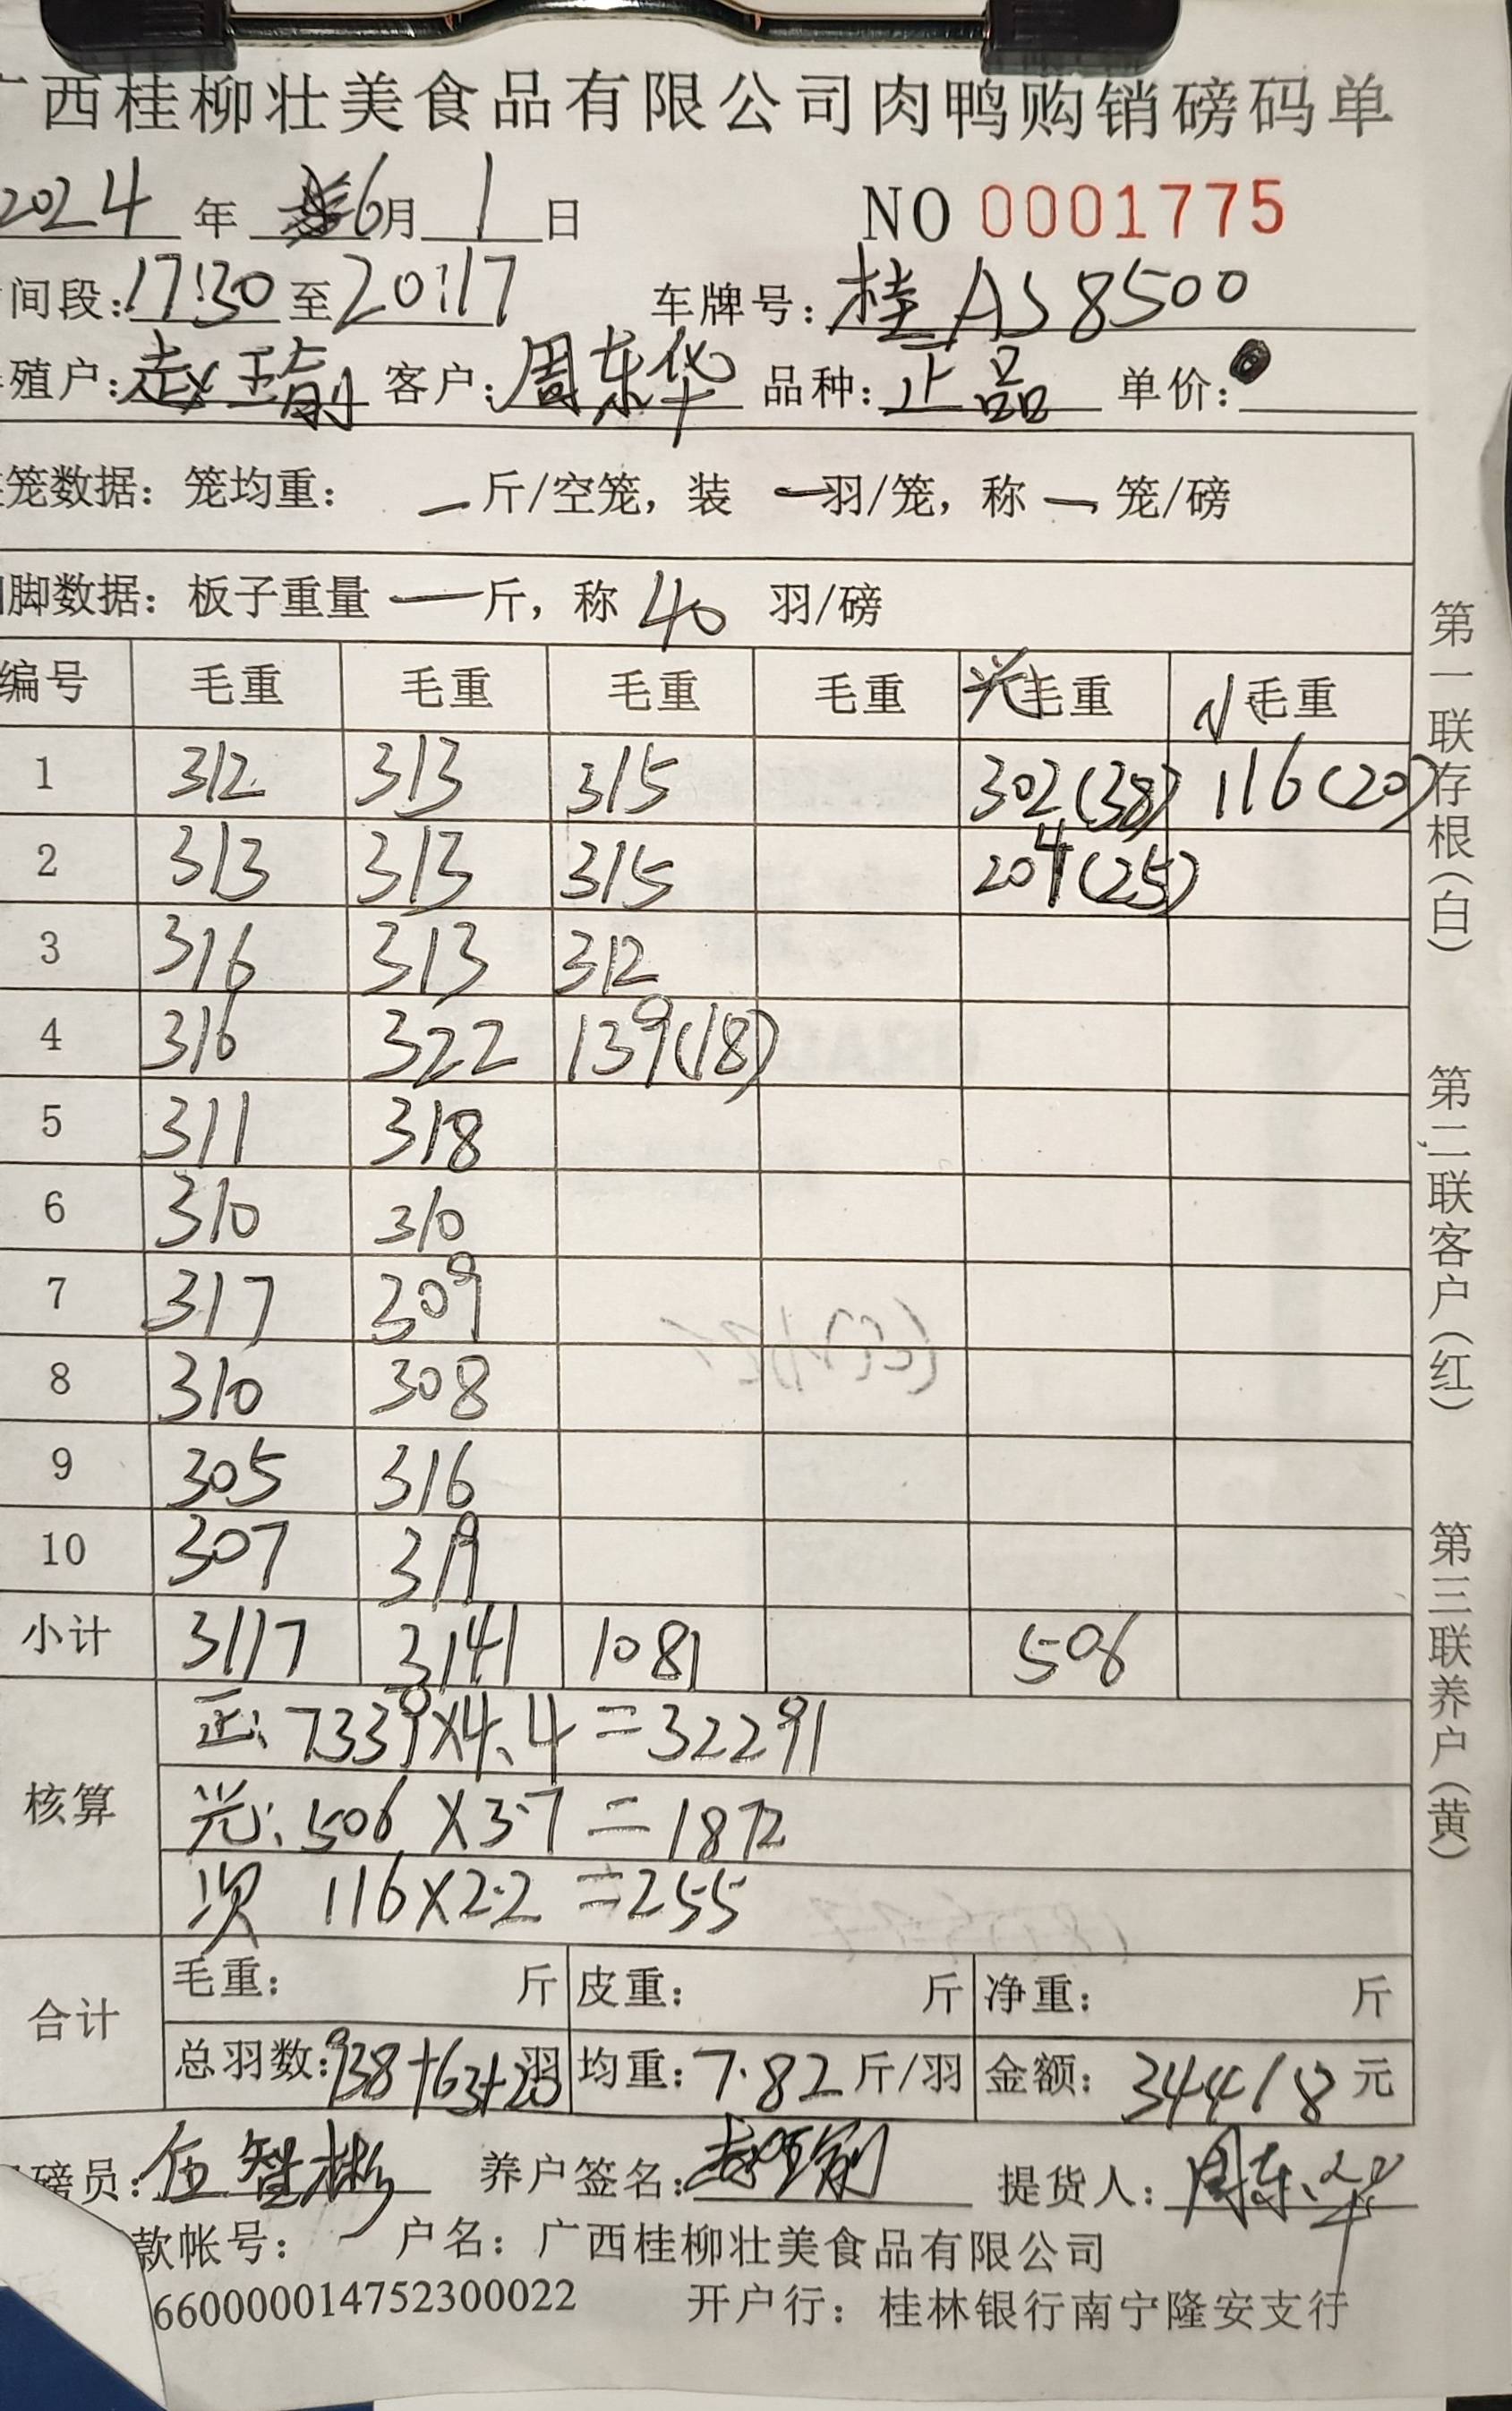 广西桂柳壮美食品有限公司肉鸭购销磅码单
2024 年 6月 1 日 NO 0001775
间段:17:30 至 20:17 车牌号:桂AS8500
殖户: 客户:周东华 品种:正品 单价:
笼数据:笼均重: — 斤/空笼,装 — 羽/笼,称 — 笼/磅
脚数据:板子重量 — 斤,称 40 羽/磅
编号 毛重 毛重 毛重 毛重 光毛重 次毛重
1 312 313 315 302(38) 116(20)
2 313 313 315 204(25)
3 316 313 312
4 316 322 139(18)
5 311 318
6 310 310
7 317 309
8 310 308
9 305 316
10 307 319
小计 3117 3141 1081 506
核算
正:7339×4.4=32291
光:506×3.7=1872
次 116×2.2=255
合计
毛重: 斤 皮重: 斤 净重: 斤
总羽数:938+63+20羽 均重:7.82斤/羽 金额:34418元
磅员:伍智彬 养户签名: 提货人:周东华
款帐号: 户名:广西桂柳壮美食品有限公司
660000014752300022 开户行:桂林银行南宁隆安支行
第一联存根(白) 第二联客户(红) 第三联养户(黄)